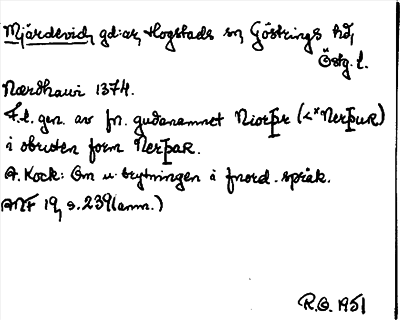 Mjärdevid, gd:ar, Hogstads sn, Göstrings hd,
Östg. l.
Nærdhawi 1374.
F.l. gen. av fn. gudanamnet Niorþr (<*NerþuR)
i obruten form NerþaR.
A. Kock: Om u-brytningen i fnord. språk.
ANF 19, s. 239 (anm.)
R.O. 1951